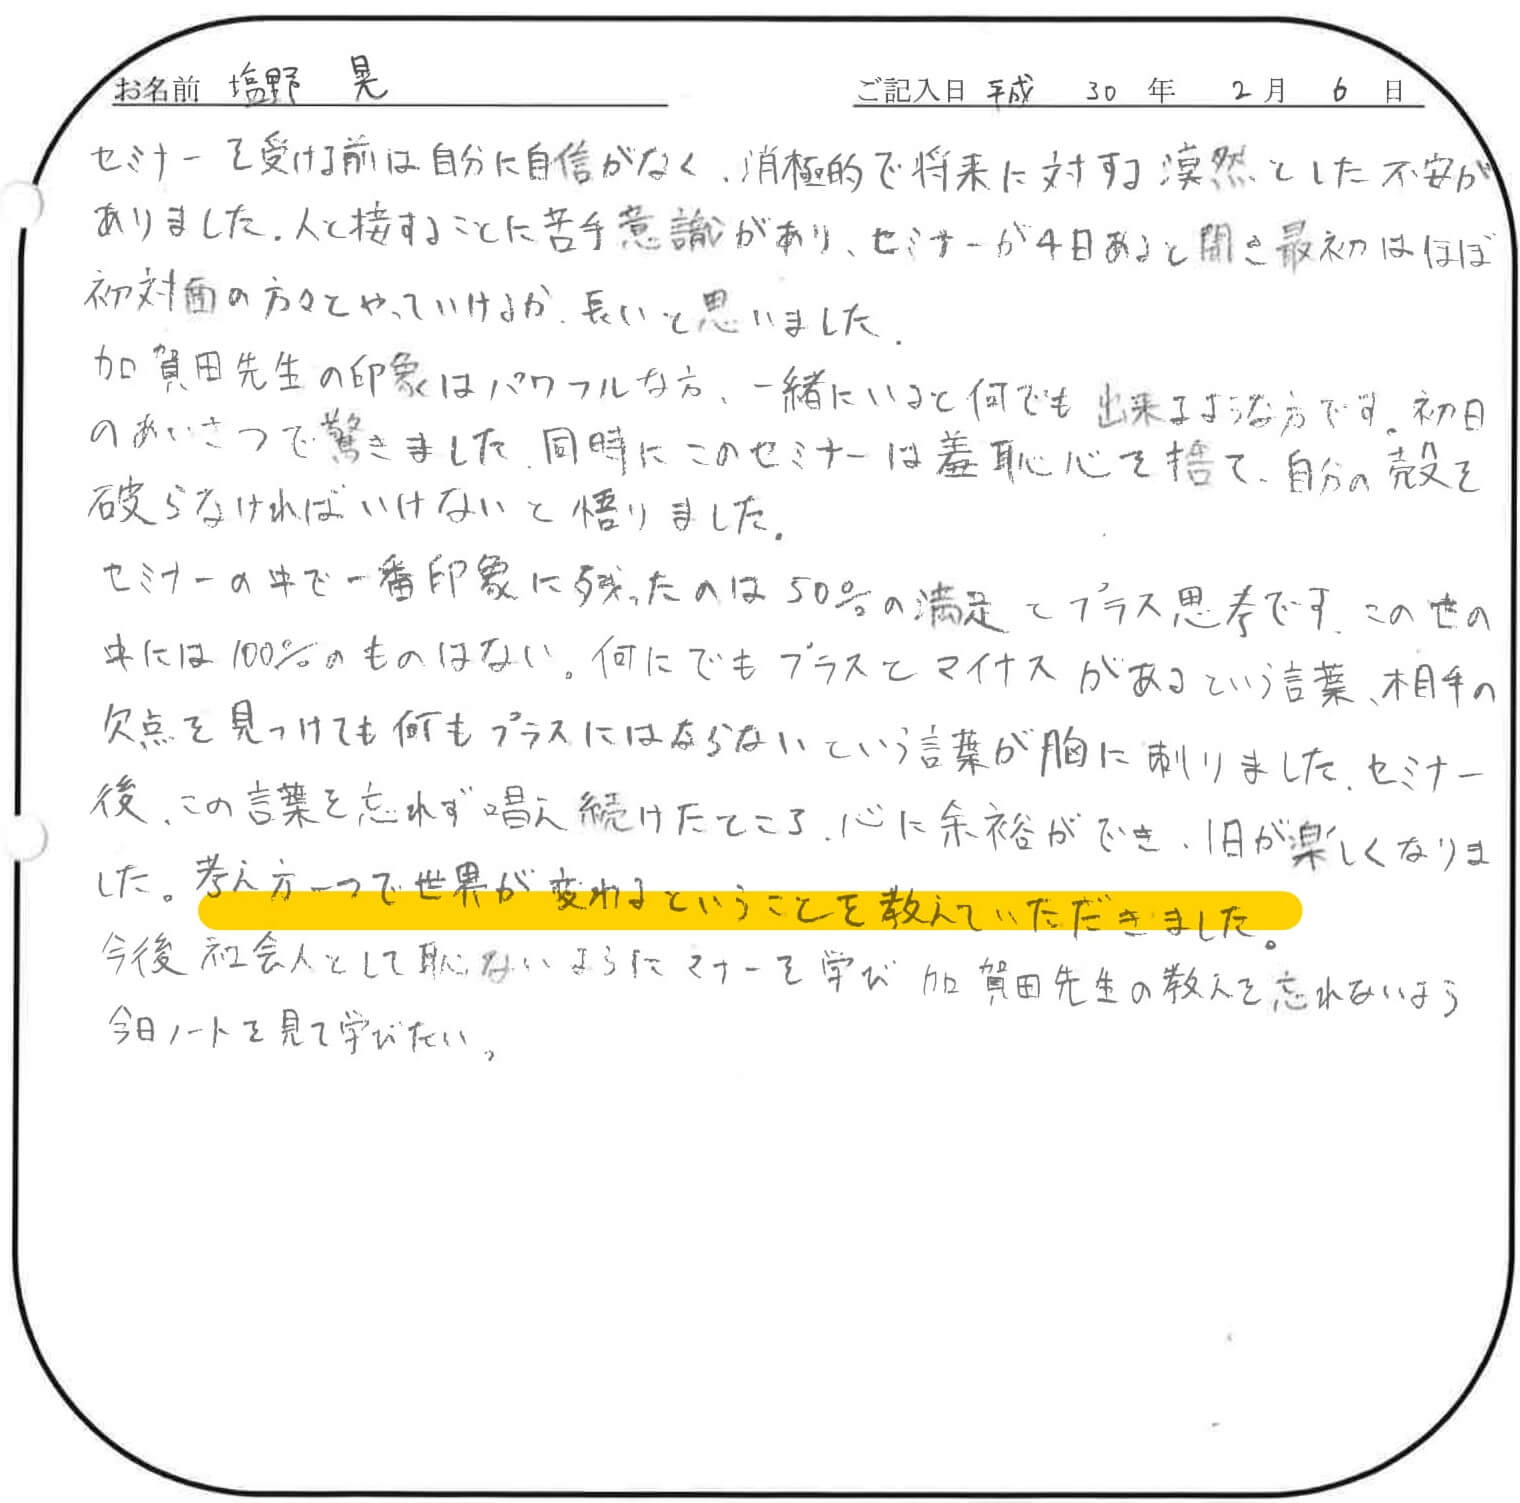 お名前 塩野 晃
ご記入日 平成 30 年 2 月 6 日
セミナーを受ける前は自分に自信がなく、消極的で将来に対する漠然とした不安が
ありました。人と接することに苦手意識があり、セミナーが4日あると聞き最初はほぼ
初対面の方々とやっていけるか、長いと思いました。
加賀田先生の印象はパワフルな方、一緒にいると何でも出来るような方です。初日
のあいさつで驚きました。同時にこのセミナーは羞恥心を捨て、自分の殻を
破らなければいけないと悟りました。
セミナーの中で一番印象に残ったのは50%の満足とプラス思考です。この世の
中には100%のものはない。何にでもプラスとマイナスがあるという言葉、相手の
欠点を見つけても何もプラスにはならないという言葉が胸に刺りました。セミナー
後、この言葉を忘れず唱え続けたところ、心に余裕ができ、1日が楽しくなりま
した。考え方一つで世界が変わるということを教えていただきました。
今後社会人として恥ないようにマナーを学び加賀田先生の教えを忘れないよう
今日ノートを見て学びたい。